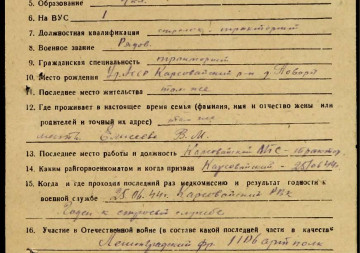 5. Образование
6. На ВУС 1
7. Должностная квалификация стрелок, тракторист
8. Военное звание Рядов.
9. Гражданская специальность тракторист
10. Место рождения Уд. АССР Карсовайский р-н д.
11. Последнее место жительства там же
12. Где проживает в настоящее время семья (фамилия, имя и отчество жены или
родителей и точный их адрес)
Елисеева В. М.
13. Последнее место работы и должность Карсовайский МТС -
14. Каким райгорвоенкоматом и когда призван Карсовайский -
15. Когда и где проходил последний раз медкомиссию и результат годности к
военной службе 25.06.44г. Карсовайский РВк
Годен к строевой службе
16. Участие в Отечественной войне (в составе какой последней части и в качестве
Ленинградский фр. полк